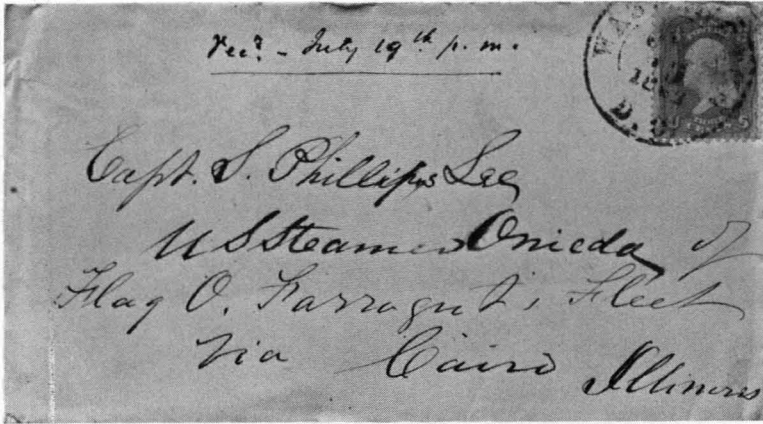 Rec.d - July 19th p. m.
WAS
D.
U S
Capt. S. Phillips Lee
U S Steamer Onieda of
Flag O. Farragut's Fleet
via Cairo Illinois